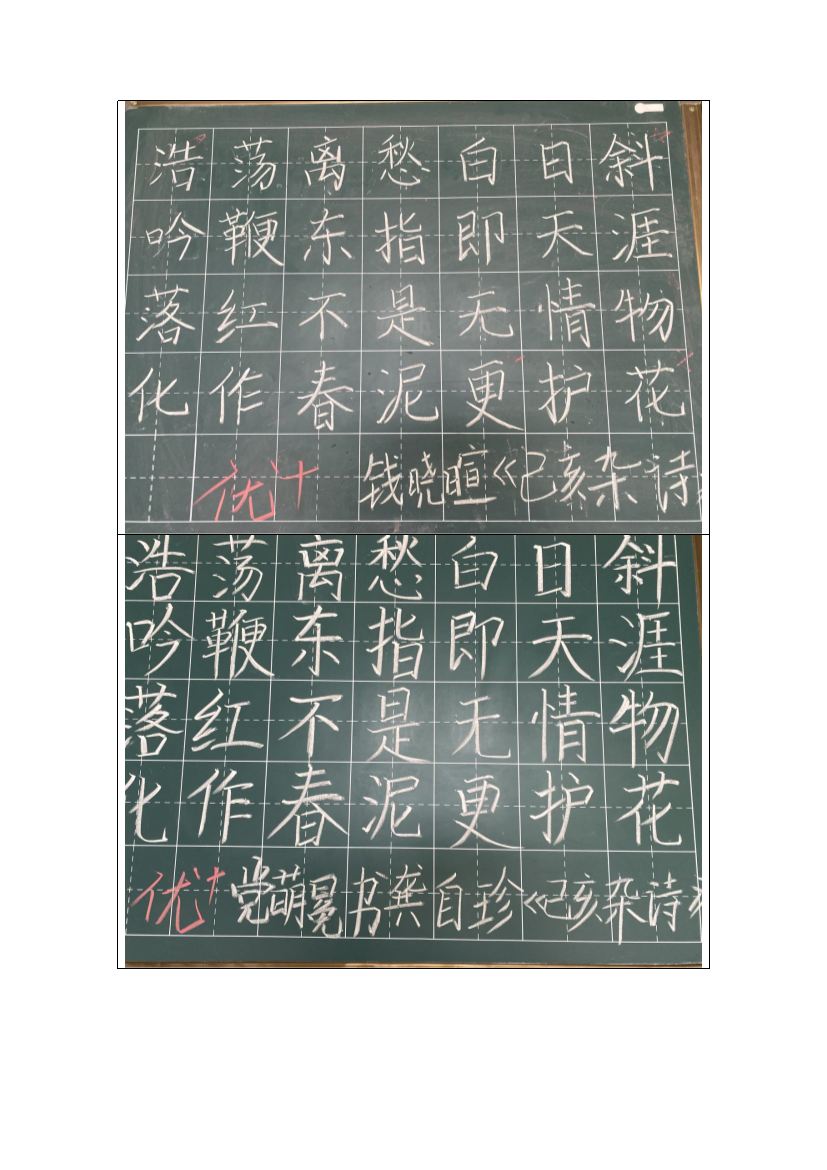 浩荡离愁白日斜
吟鞭东指即天涯
落红不是无情物
化作春泥更护花
优+ 钱晓暄《己亥杂诗》
浩荡离愁白日斜
吟鞭东指即天涯
落红不是无情物
化作春泥更护花
优+ 党萌冕书龚自珍《己亥杂诗》